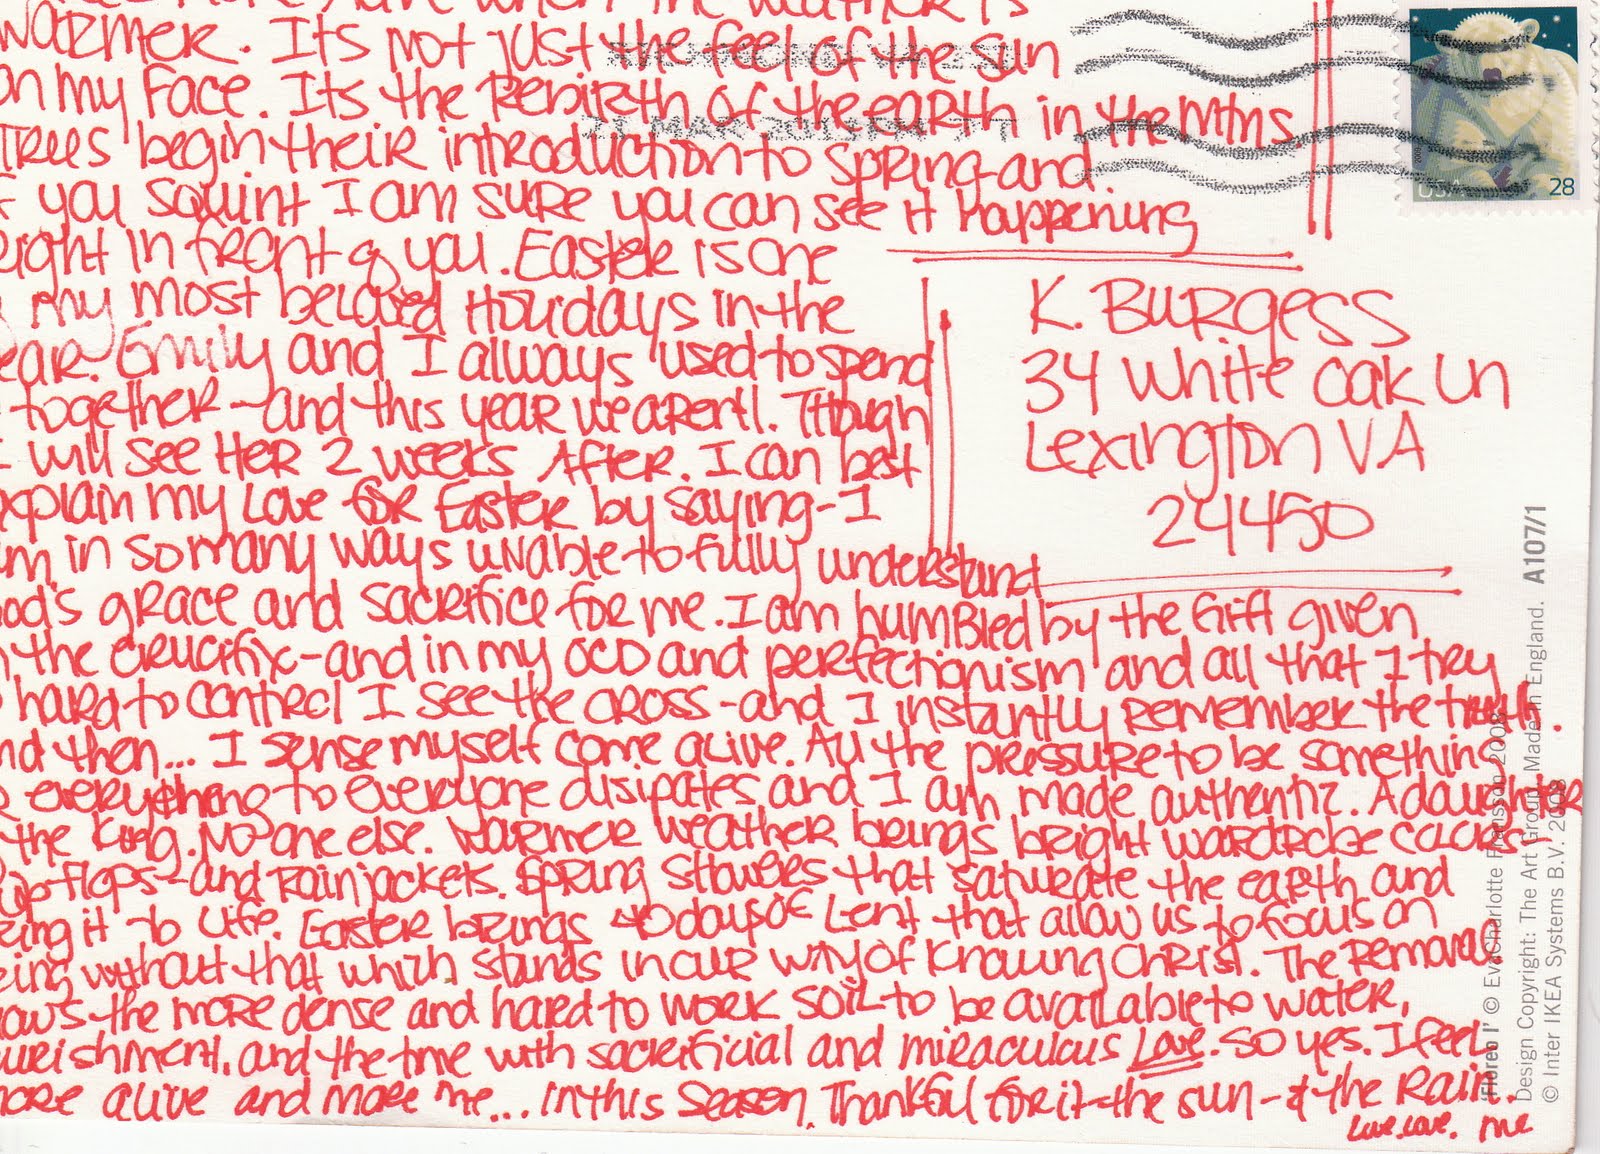 more alive when the weather is
warmer. Its not just the feel of the sun
on my face. Its the Rebirth of the earth in the Mtns.
Trees begin their introduction to spring-and
f you squint I am sure you can see it happening
right in front of you. Easter is one
my most beloved Holidays in the
ear. Emily and I allways used to spend
together-and this year we aren't. Though
I will see Her 2 weeks After. I can best
xplain my Love for Easter by saying-I
m in so many ways unable to fully understand
od's grace and sacrifice for me. I am humbled by the Gift given
n the crucifix-and in my OCD and perfectionism and all that I try
hard to control I see the cross-and I instantly remember the truth.
nd then... I sense myself come alive. All the pressure to be something
everything to everyone disipates and I am made authentic. A daughter
the King. No one else. Warmer weather brings bright wardrobe colors-
ip-flops-and Rain jackets. Spring showers that saturate the earth and
ring it to life. Easter brings 40 days of Lent that allow us to focus on
eing without that which stands in our way of Knowing Christ. The Removal
ows the more dense and hard to work soil to be available to water,
ourishment, and the time with sacrificial and miraculous Love. So yes. I feel
more alive and more me... in this season. Thankful for it-the sun-& the Rain.
Love.Love. Me
28
USA
2009
K. Burgess
34 White Oak Ln
Lexington VA
24450
'Floren I' © Eva Charlotte Fransson 2008
Design Copyright: The Art Group. Made in England. A107/1
© Inter IKEA Systems B.V. 2008